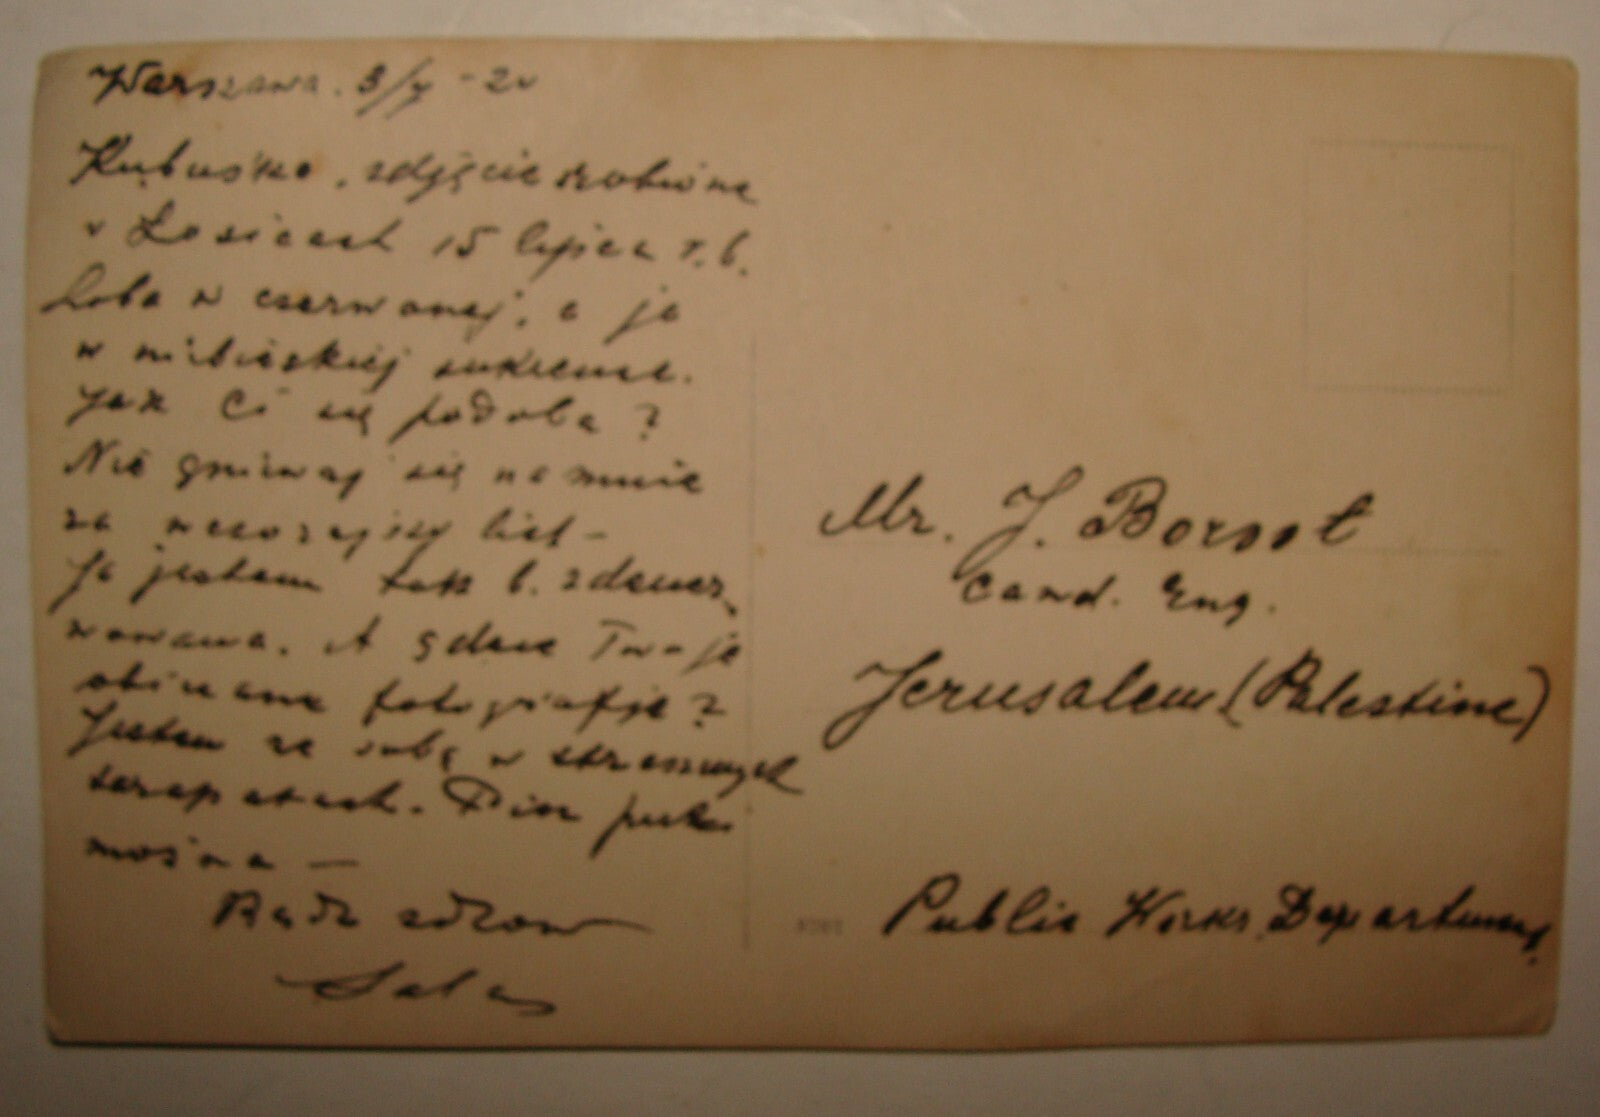 Warszawa. 3/
Kubuśko, zdjęcie zrobione
w Łosicach 15 lipca r. b.
Loba w czerwonej, a ja
w niebieskiej sukience.
Jak Ci się podoba?
Nie gniewaj się na mnie
za wczorajszy list -
Ja jestem tak b. zdener
wowana. A gdzie Twoje
obiecane fotografje?
Jestem ze sobą w strasznych
tarapatach. Pisz
można —
Bądź zdrów
Mr. J. Bornot
Cand. Eng.
Jerusalem (Palestine)
Public Works Department.